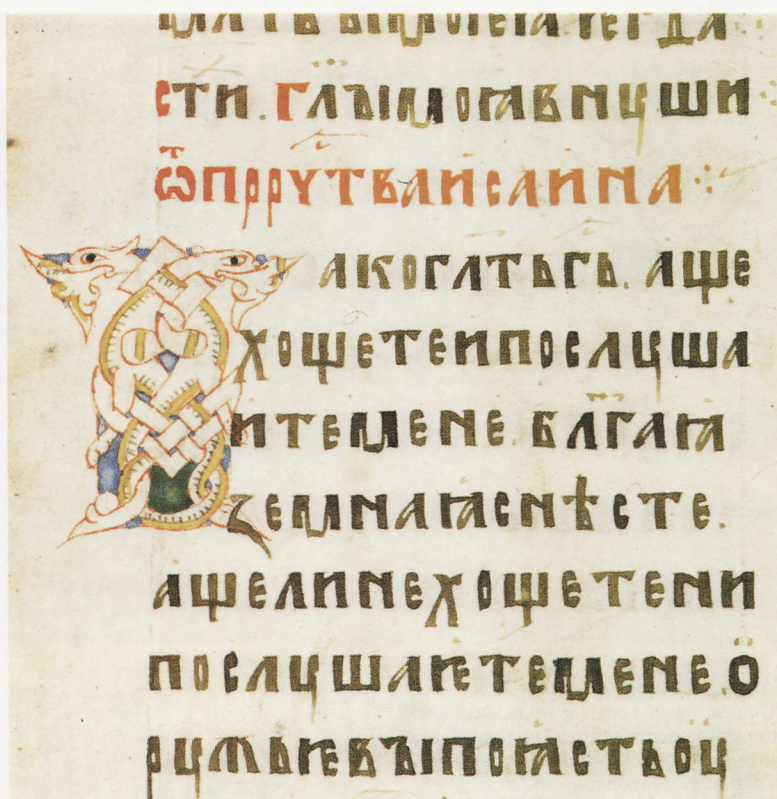 сти. глъімоꙗвнꙋши
ѿпррчтваисаина
такоглтьгь. аще
хощетеипослꙋша
итемене. блгаꙗ
ꙁемнаꙗснѣсте.
ащелинехощетени
послꙋшаѥтемене. о
рꙋжьѥвъıпоꙗстьоу